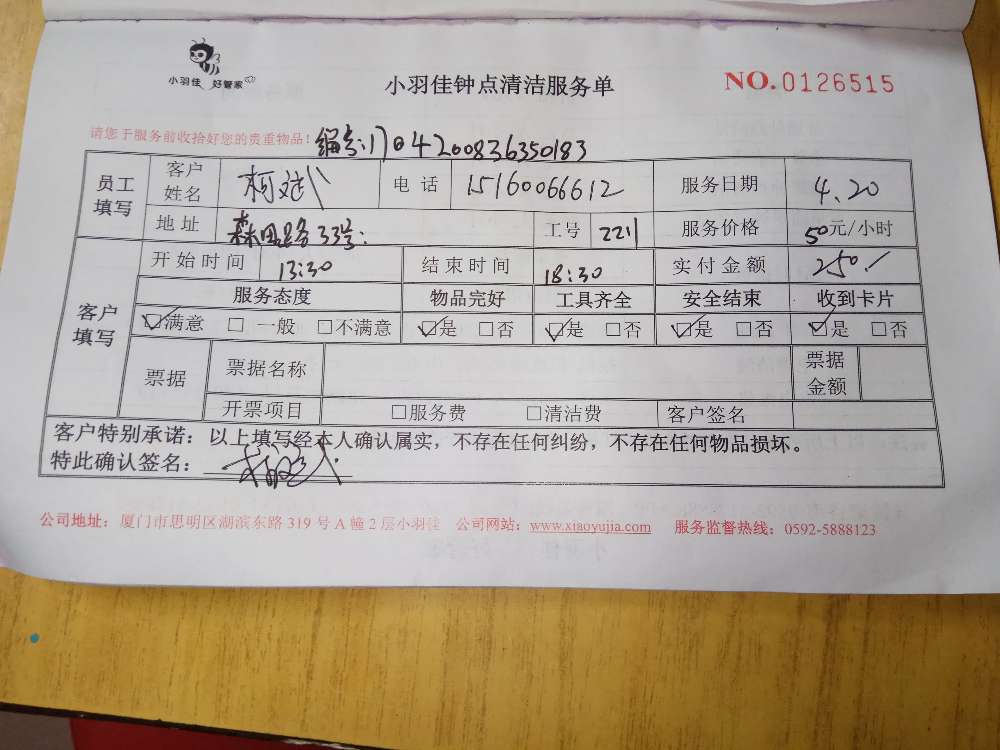 小羽佳 好管家
小羽佳钟点清洁服务单
NO.0126515
请您于服务前收拾好您的贵重物品!
编号:1704200836350183
员工填写 客户姓名 柯 电话 15160066612 服务日期 4.20
地址 33号 工号 221 服务价格 50元/小时
客户填写 开始时间 13:30 结束时间 18:30 实付金额 250
服务态度 物品完好 工具齐全 安全结束 收到卡片
☑满意 □一般 □不满意 ☑是 □否 ☑是 □否 ☑是 □否 ☑是 □否
票据 票据名称 票据金额
开票项目 □服务费 □清洁费 客户签名
客户特别承诺：以上填写经本人确认属实，不存在任何纠纷，不存在任何物品损坏。
特此确认签名：
公司地址：厦门市思明区湖滨东路 319 号 A 幢 2 层小羽佳 公司网站：www.xiaoyujia.com 服务监督热线：0592-5888123